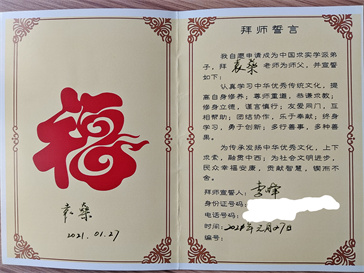 福
袁燊
2021.01.27
拜师誓言
我自愿申请成为中国求实学派弟
子，拜袁燊老师为师父，并宣誓
如下：
认真学习中华优秀传统文化，提
高自身修养；尊师重道，恭谦求教；
修身立德，谨言慎行；友爱同门，互
相帮助；团结协作，乐于奉献；终身
学习，勇于创新；多行善事，多种善
果。
为传承发扬中华优秀文化，上下
求索，融贯中西；为社会文明进步，
民众幸福安康，贡献智慧，锲而不
舍。
拜师宣誓人：李
身份证号码：
电话号码：
时间：2021年元月27日
编号：